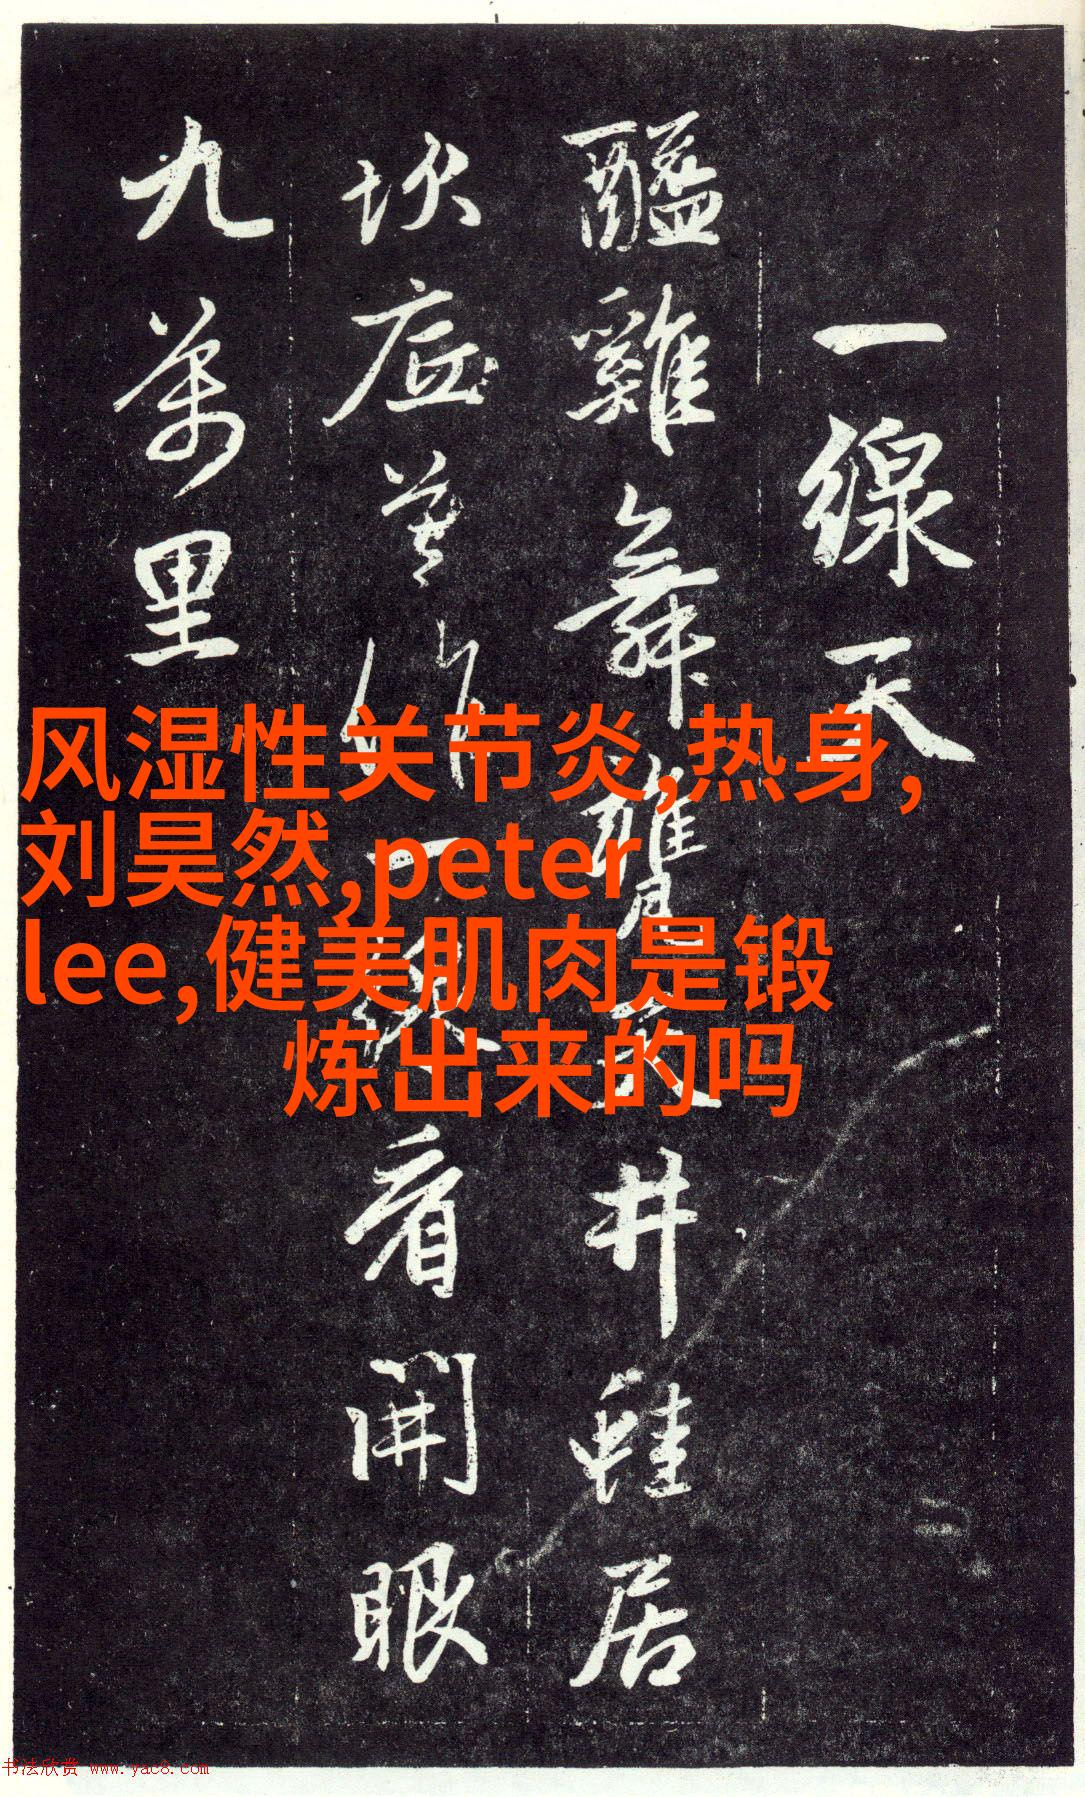 一線天
醯雞舞甕天井蛙居
坎底莫作一線看開眼
九萬里
风湿性关节炎,热身,
刘昊然,peter
lee,健美肌肉是锻
炼出来的吗
书法欣赏 www.yac8.com